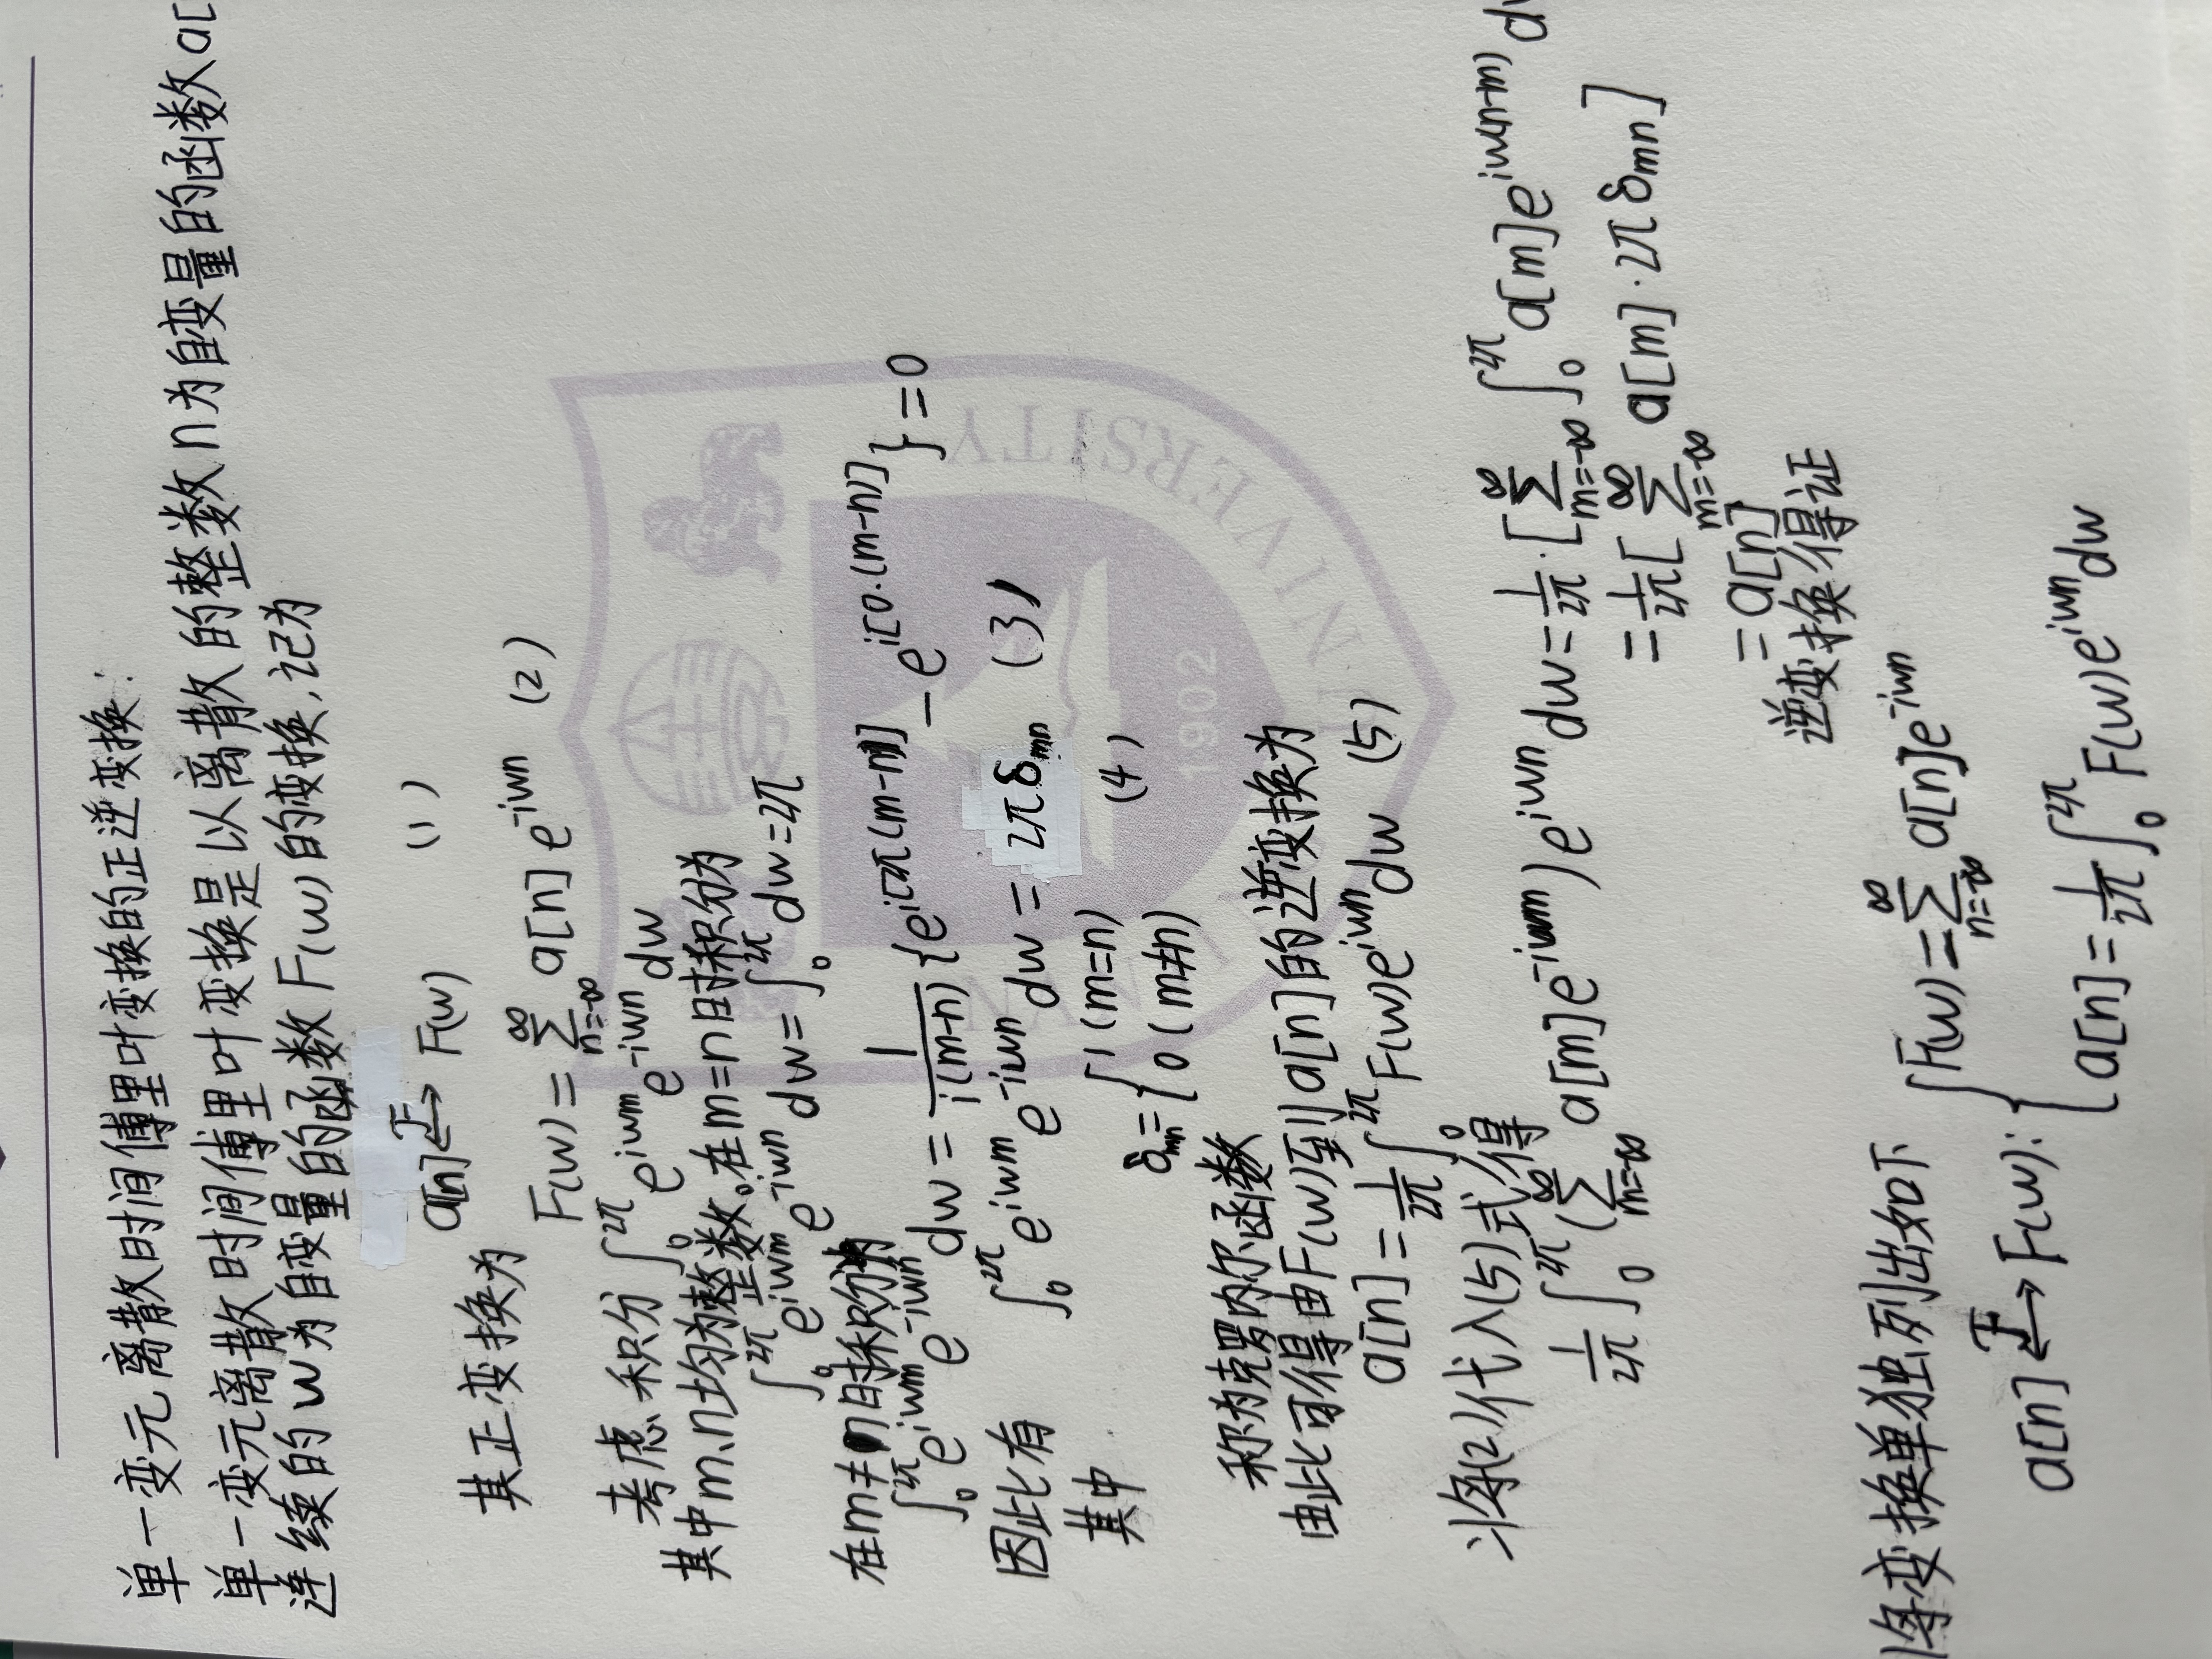 单一变元离散时间傅里叶变换的正逆变换:
单一变元离散时间傅里叶变换是以离散的整数n为自变量的函数a[
连续的w为自变量的函数F(w)的变换,记为
a[n] ℱ↔ F(w) (1)
其正变换为
F(w) = ∑_{n=-∞}^{∞} a[n] e^{-iwn} (2)
考虑积分 ∫_0^{2π} e^{iwm} e^{-iwn} dw
其中m、n均为整数。在m=n时积分为
∫_0^{2π} e^{iwm} e^{-iwn} dw = ∫_0^{2π} dw = 2π
在m≠n时积分为
∫_0^{2π} e^{iwm} e^{-iwn} dw = \frac{1}{i(m-n)} {e^{i[2π(m-n)]} - e^{i[0·(m-n)]}} = 0
因此有 ∫_0^{2π} e^{iwm} e^{-iwn} dw = 2πδ_{mn} (3)
其中
δ_{mn} = { 1 (m=n)
0 (m≠n) (4)
称为克罗内尔函数
由此可得由F(w)到a[n]的逆变换为
a[n] = \frac{1}{2π} ∫_0^{2π} F(w) e^{iwn} dw (5)
将(2)代入(5)式得
\frac{1}{2π} ∫_0^{2π} (∑_{m=-∞}^{∞} a[m] e^{-iwm}) e^{iwn} dw = \frac{1}{2π} · [∑_{m=-∞}^{∞} ∫_0^{2π} a[m] e^{iw(n-m)} d
= \frac{1}{2π} [∑_{m=-∞}^{∞} a[m] · 2π δ_{mn}]
= a[n]
逆变换得证
将变换单独列出如下
a[n] ℱ↔ F(w): { F(w) = ∑_{n=-∞}^{∞} a[n] e^{-iwn}
a[n] = \frac{1}{2π} ∫_0^{2π} F(w) e^{iwn} dw
1902
UNIVERSITY